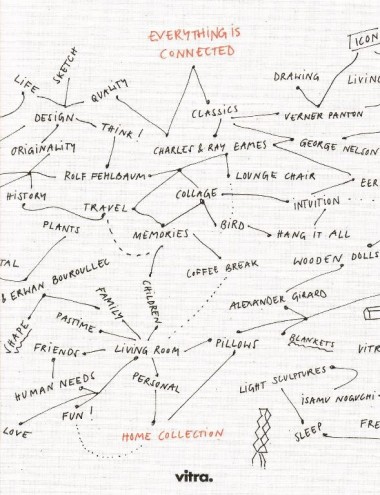 EVERYTHING IS
CONNECTED
ICON
LIFE
SKETCH
QUALITY
DRAWING
LIVING
DESIGN
CLASSICS
VERNER PANTON
THINK!
ORIGINALITY
CHARLES & RAY EAMES
GEORGE NELSON
ROLF FEHLBAUM
LOUNGE CHAIR
EER
HISTORY
COLLAGE
INTUITION
TRAVEL
PLANTS
MEMORIES
BIRD
HANG IT ALL
TAL
COFFEE BREAK
WOODEN DOLLS
& ERWAN BOUROULLEC
FAMILY
CHILDREN
ALEXANDER GIRARD
PASTIME
SHAPE
FRIENDS
LIVING ROOM
PILLOWS
BLANKETS
VITR
HUMAN NEEDS
PERSONAL
LIGHT SCULPTURES
ISAMU NOGUCHI
FUN!
LOVE
HOME COLLECTION
SLEEP
FRE
vitra.